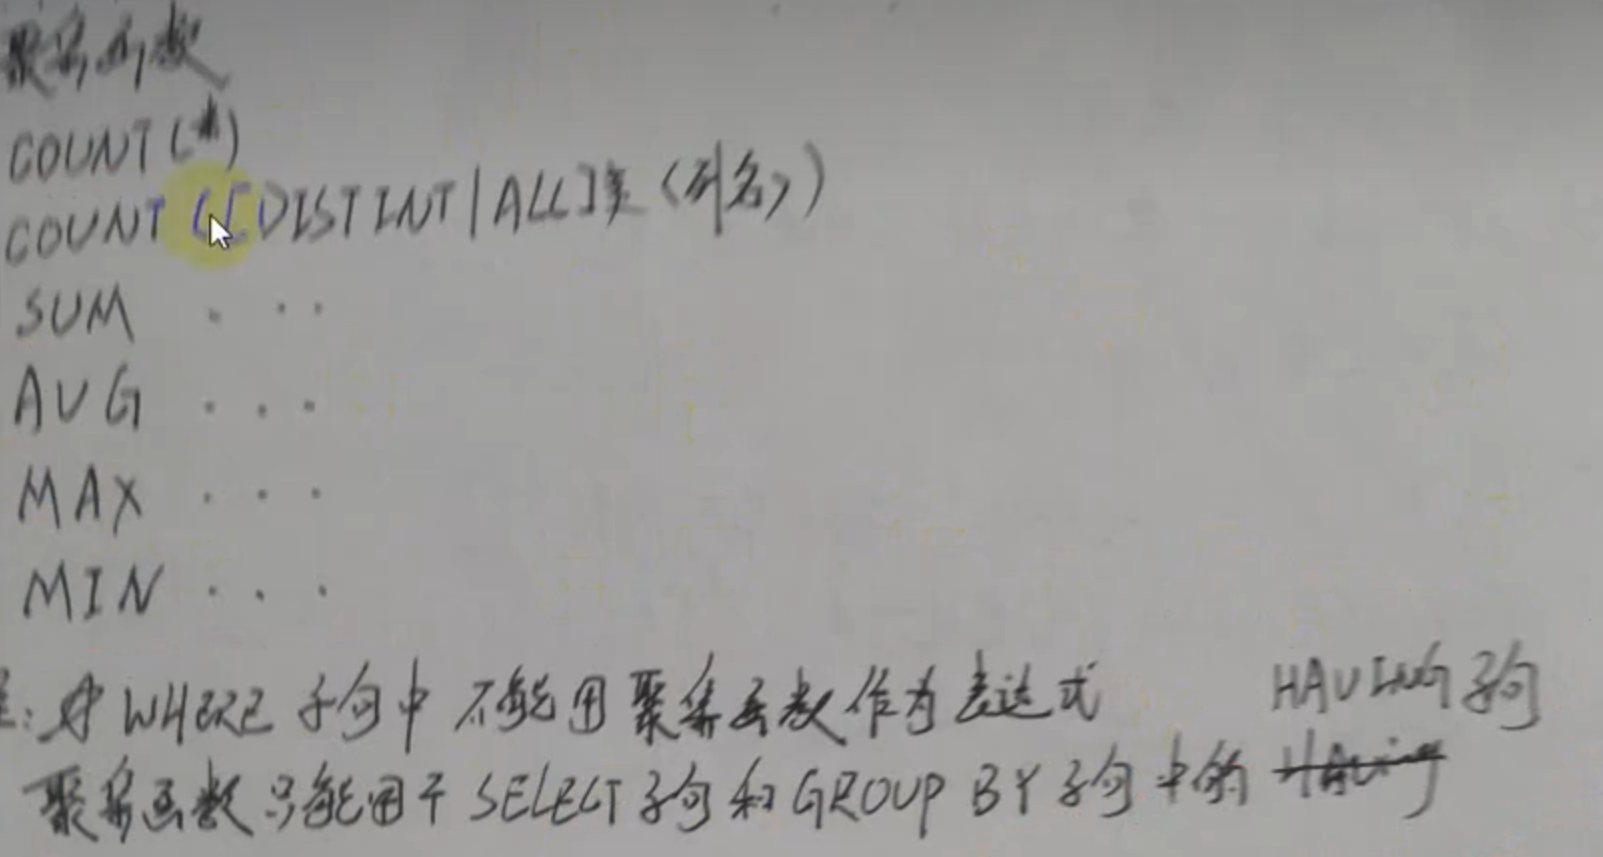 聚集函数
COUNT(*)
COUNT([DISTINT|ALL] <列名>)
SUM ...
AVG ...
MAX ...
MIN ...
: WHERE 子句中 不能用 聚集函数 作为 表达式
聚集函数 只能用于 SELECT 子句 和 GROUP BY 子句 中的 HAVING 子句